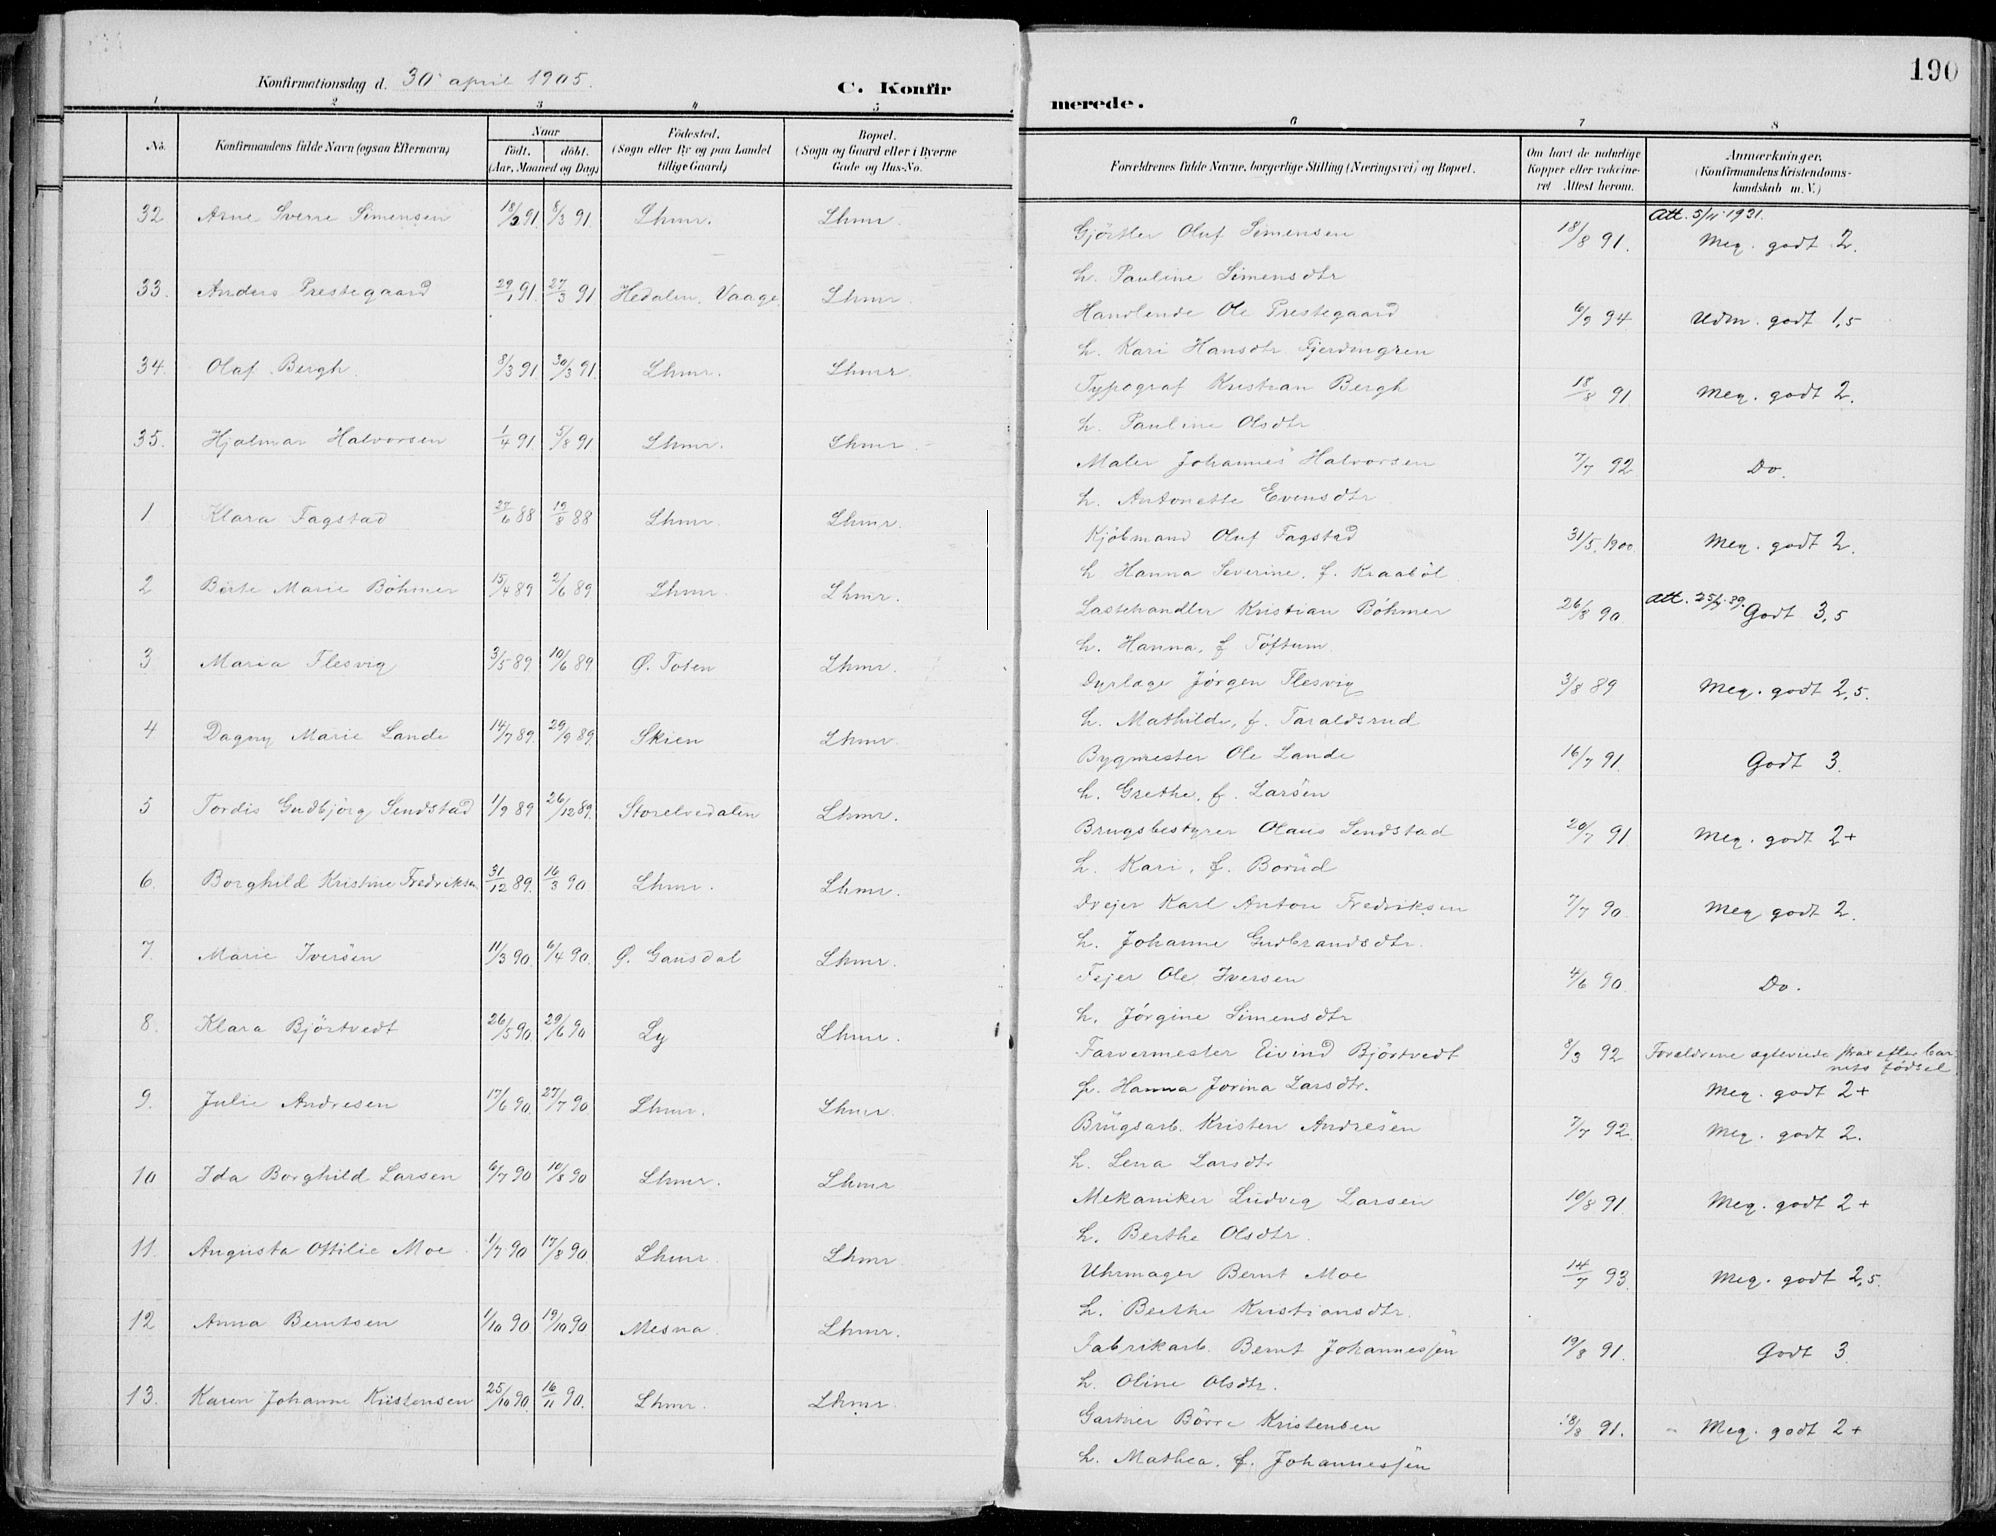 190
Konfirmationsdag d. 30 april 1905.
C. Konfirmerede.
1 2 3 4 5 6 7 8
No. | Konfirmandens fulde Navn (ogsaa Efternavn) | Naar født, døbt. (Aar, Maaned og Dag) | Fødested. (Sogn eller By og paa Landet tillige Gaard) | Bopæl. (Sogn og Gaard eller i Byerne Gade og Hus-No. | Forældrenes fulde Navne, borgerlige Stilling (Næringsvei) og Bopæl. | Om havt de naturlige Kopper eller vakcineret. Attest herom. | Anmærkninger. (Konfirmandens Kristendomskundskab m. V.)
Att. 5/11 1931.
32 Arne Sverre Simensen 18/2 91 8/3 91 Lhmr. Lhmr Gjörtler Oluf Simensen 18/8 91. Meg. godt 2.
h. Pauline Simensdtr
33. Anders Prestegaard 29/1 91. 27/3 91 Hedalen, Vaage Lhmr Handlende Ole Prestegaard 6/9 94 Udm. godt 1,5
h. Kari Hansdtr. Fjerdingren
34. Olaf Bergh. 8/3 91. 30/3 91. Lhmr. Lhmr Typograf Kristian Bergh 18/8 91 Meg. godt 2.
h. Pauline Olsdtr
35. Hjalmar Halvorsen 1/4 91 5/8 91 Lhmr. Lhmr Maler Johannes Halvorsen 7/7 92 Do.
h. Antonette Evensdtr
1 Klara Fagstad 27/6 88 19/8 88 Lhmr. Lhmr. Kjöbmand Oluf Fagstad 31/5. 1900. Meg. godt 2.
h Hanna Severine, f. Kraaböl
Att. 25/4 89.
2 Börte Marie Böhmer 15/4 89 2/6 89 Lhmr. Lhmr. Lastehandler Kristian Böhmer 26/8 90 Godt 3,5
h. Hanna, f Töftum
3 Maria Flesvig 3/5 89 10/6 89 Ø. Toten Lhmr. Dyrlæge Jörgen Flesvig 3/8 89 Meg. godt 2,5.
h. Mathilde, f. Taraldsrud
4 Dagny Marie Lande 14/7 89. 29/9 89. Skien Lhmr. Bygmester Ole Lande 16/7 91. Godt 3.
h. Grethe, f. Larsen
5 Tordis Gudbjörg Sendstad 1/9 89 26/12 89. Storelvedalen Lhmr. Brugsbestyrer Olaus Sendstad 20/7 91 Meg. godt 2+
h. Kari, f. Borud
6. Borghild Kristine Fredriksen 31/12 89. 16/3 90. Lhmr. Lhmr. Drejer Karl Anton Fredriksen 7/7 90. Meg godt 2.
h. Johanne Gudbrandsdtr.
7. Marie Iversen 11/3 90. 6/4 90. Ø. Gausdal Lhmr. Fejer Ole Iversen 4/6 90. Do.
h. Jörgine Simensdtr.
8. Klara Björtvedt 26/5 90. 29/6 90 Ly Lhmr. Farvermester Eivind Björtvedt 8/3 92 Forældrene ægteviede strax efter barnets födsel
f. Hanna Jorina Larsdtr. Meg. godt 2+
9. Julie Andresen 17/6 90. 27/7 90. Lhmr. Lhmr. Brugsarb. Kristen Andresen 7/7 92. Meg. godt 2.
h. Lena Larsdtr
10 Ida Borghild Larsen 6/7 90 10/8 90 Lhmr. Lhmr Mekaniker Ludvig Larsen 10/8 91. Meg. godt 2+
h. Berthe Olsdtr.
11. Augusta Ottilie Moe 1/7 90 17/8 90. Lhmr. Lhmr Uhrmager Bernt Moe 14/7 93 Meg. godt 2,5.
h. Berthe Kristiansdtr.
12 Anna Berntsen 1/10 90. 19/10 90 Mesna. Lhmr. Fabrikarb. Bernt Johannessen 19/8 91. Godt 3
h. Oline Olsdtr.
13. Karen Johanne Kristensen 25/10 90. 16/11 90. Lhmr. Lhmr. Gartner Börre Kristensen 18/8 91. Meg. godt 2+
h. Mathea, f. Johannessen